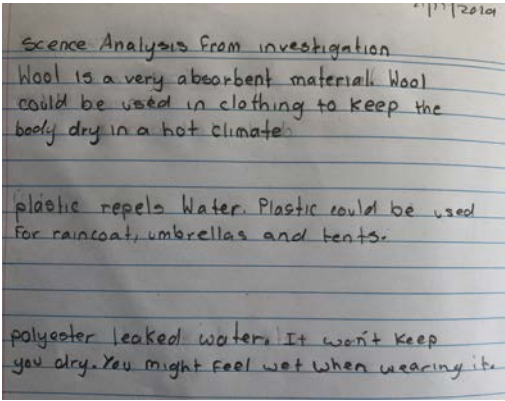 2019
Scence Analysis from investigation
Wool is a very absorbent material. Wool
could be used in clothing to keep the
body dry in a hot climate
plastic repels Water. Plastic could be used
For raincoat, umbrellas and tents.
polyester leaked water. It won't keep
you dry. You might feel wet when wearing it.